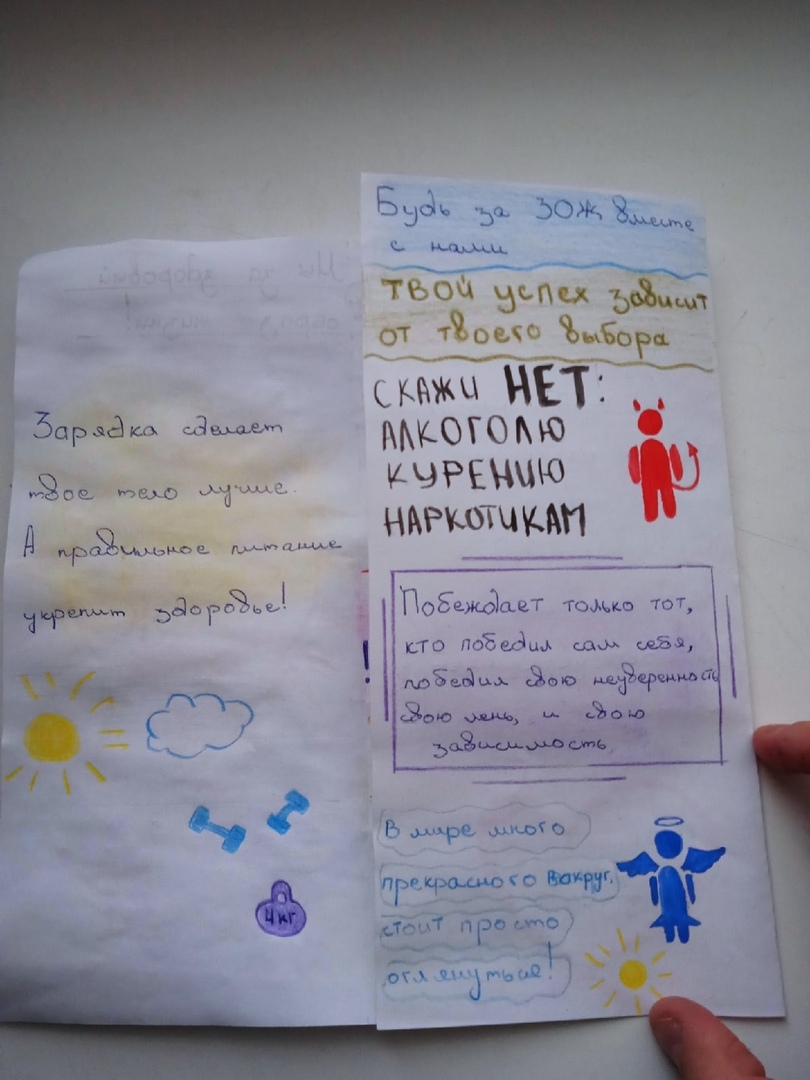 Зарядка сделает
твое тело лучше.
А правильное питание
укрепит здоровье!
4 кг
Будь за ЗОЖ вместе
с нами
ТВОЙ успех зависит
от твоего выбора
СКАЖИ НЕТ:
АЛКОГОЛЮ
КУРЕНИЮ
НАРКОТИКАМ
Побеждает только тот,
кто победил сам себя,
победил свою неуверенность
свою лень, и свою
зависимость.
В мире много
прекрасного вокруг,
стоит просто
оглянуться!
Мы за здоровый
образ жизни!